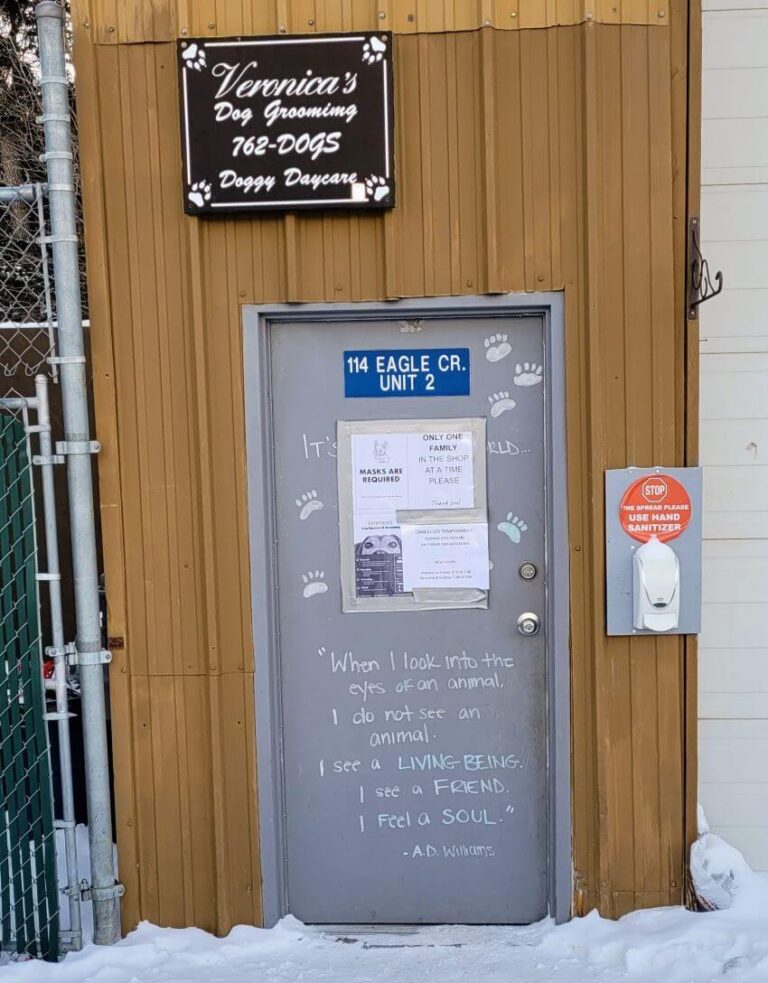 Veronica's
Dog Grooming
762-DOGS
Doggy Daycare
114 EAGLE CR.
UNIT 2
IT'S
RLD...
MASKS ARE
REQUIRED
ONLY ONE
FAMILY
IN THE SHOP
AT A TIME
PLEASE
Thank you!
STOP
THE SPREAD PLEASE
USE HAND
SANITIZER
"When I look into the
eyes of an animal,
I do not see an
animal.
I see a LIVING BEING.
I see a FRIEND.
I Feel a SOUL."
- A.D. Williams